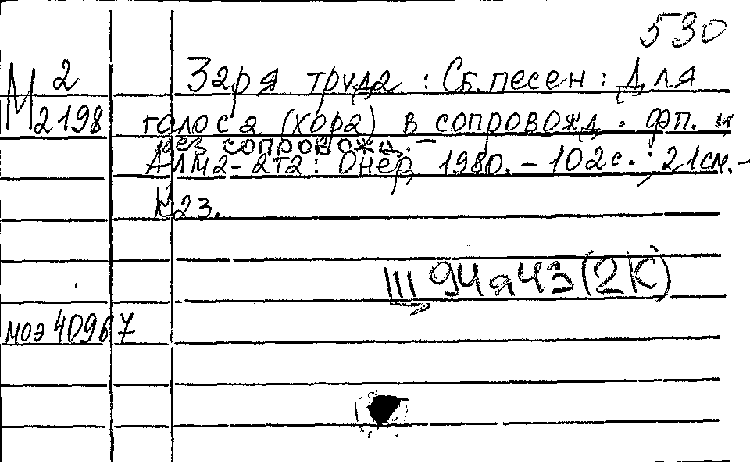 530
М 2
2198
Заря труда : Сб. песен : Для
голоса (хора) в сопровожд. фп. и
без сопровожд. –
Алма-Ата : Өнер, 1980. – 102 с. ; 21 см. –
Каз.
III 94я43(2К)
МОЭ 40967